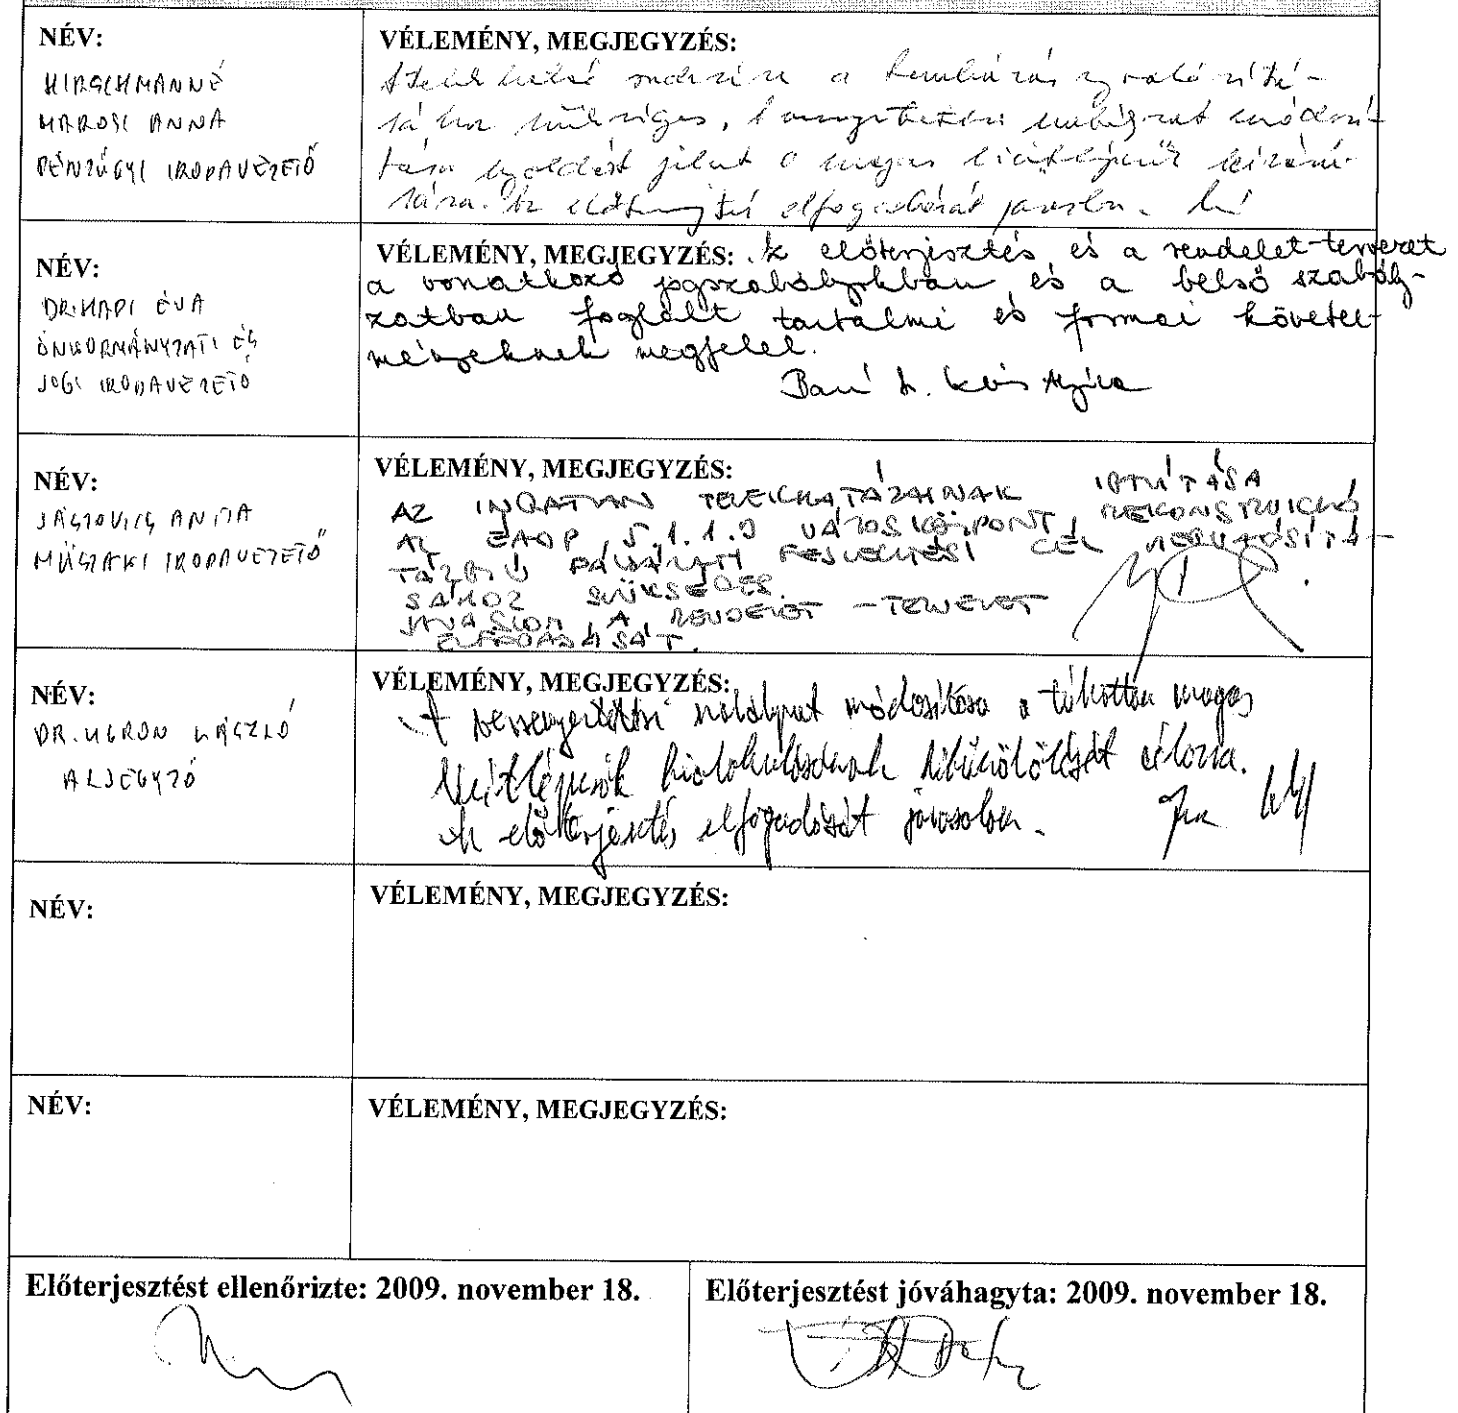 NÉV:
HIRSCHMANNÉ
MAROSI ANNA
PÉNZÜGYI IRODAVEZETŐ
VÉLEMÉNY, MEGJEGYZÉS:
a
szükséges, a
jelent a magas licitlépcsők
Az előterjesztés elfogadását javaslom.
NÉV:
DR. HAPI ÉVA
ÖNKORMÁNYZATI ÉS
JOGI IRODAVEZETŐ
VÉLEMÉNY, MEGJEGYZÉS: Az előterjesztés és a rendelet-tervezet
a vonatkozó jogszabályokban és a belső szabály-
zatban foglalt tartalmi és formai követel-
ményeknek megfelel.
NÉV:
JÁSZOVICS ANITA
MŰSZAKI IRODAVEZETŐ
VÉLEMÉNY, MEGJEGYZÉS:
AZ INGATLAN TELEKHATÁRAINAK
AZ ÉAOP 5.1.1.D VÁROSKÖZPONT REKONSTRUKCIÓ
TÁRGYÚ PÁLYÁZATI FEJLESZTÉSI CÉL MEGVALÓSÍTÁ-
SÁHOZ SZÜKSÉGES.
JAVASLOM A RENDELET-TERVEZET
ELFOGADÁSÁT.
NÉV:
DR. UGRON LÁSZLÓ
ALJEGYZŐ
VÉLEMÉNY, MEGJEGYZÉS:
A versenyeztetési szabályzat módosítása a túlzottan magas
licitlépcsők kialakulásának kiküszöbölését célozza.
Az előterjesztés elfogadását javasolom.
NÉV:
VÉLEMÉNY, MEGJEGYZÉS:
NÉV:
VÉLEMÉNY, MEGJEGYZÉS:
Előterjesztést ellenőrizte: 2009. november 18.
Előterjesztést jóváhagyta: 2009. november 18.